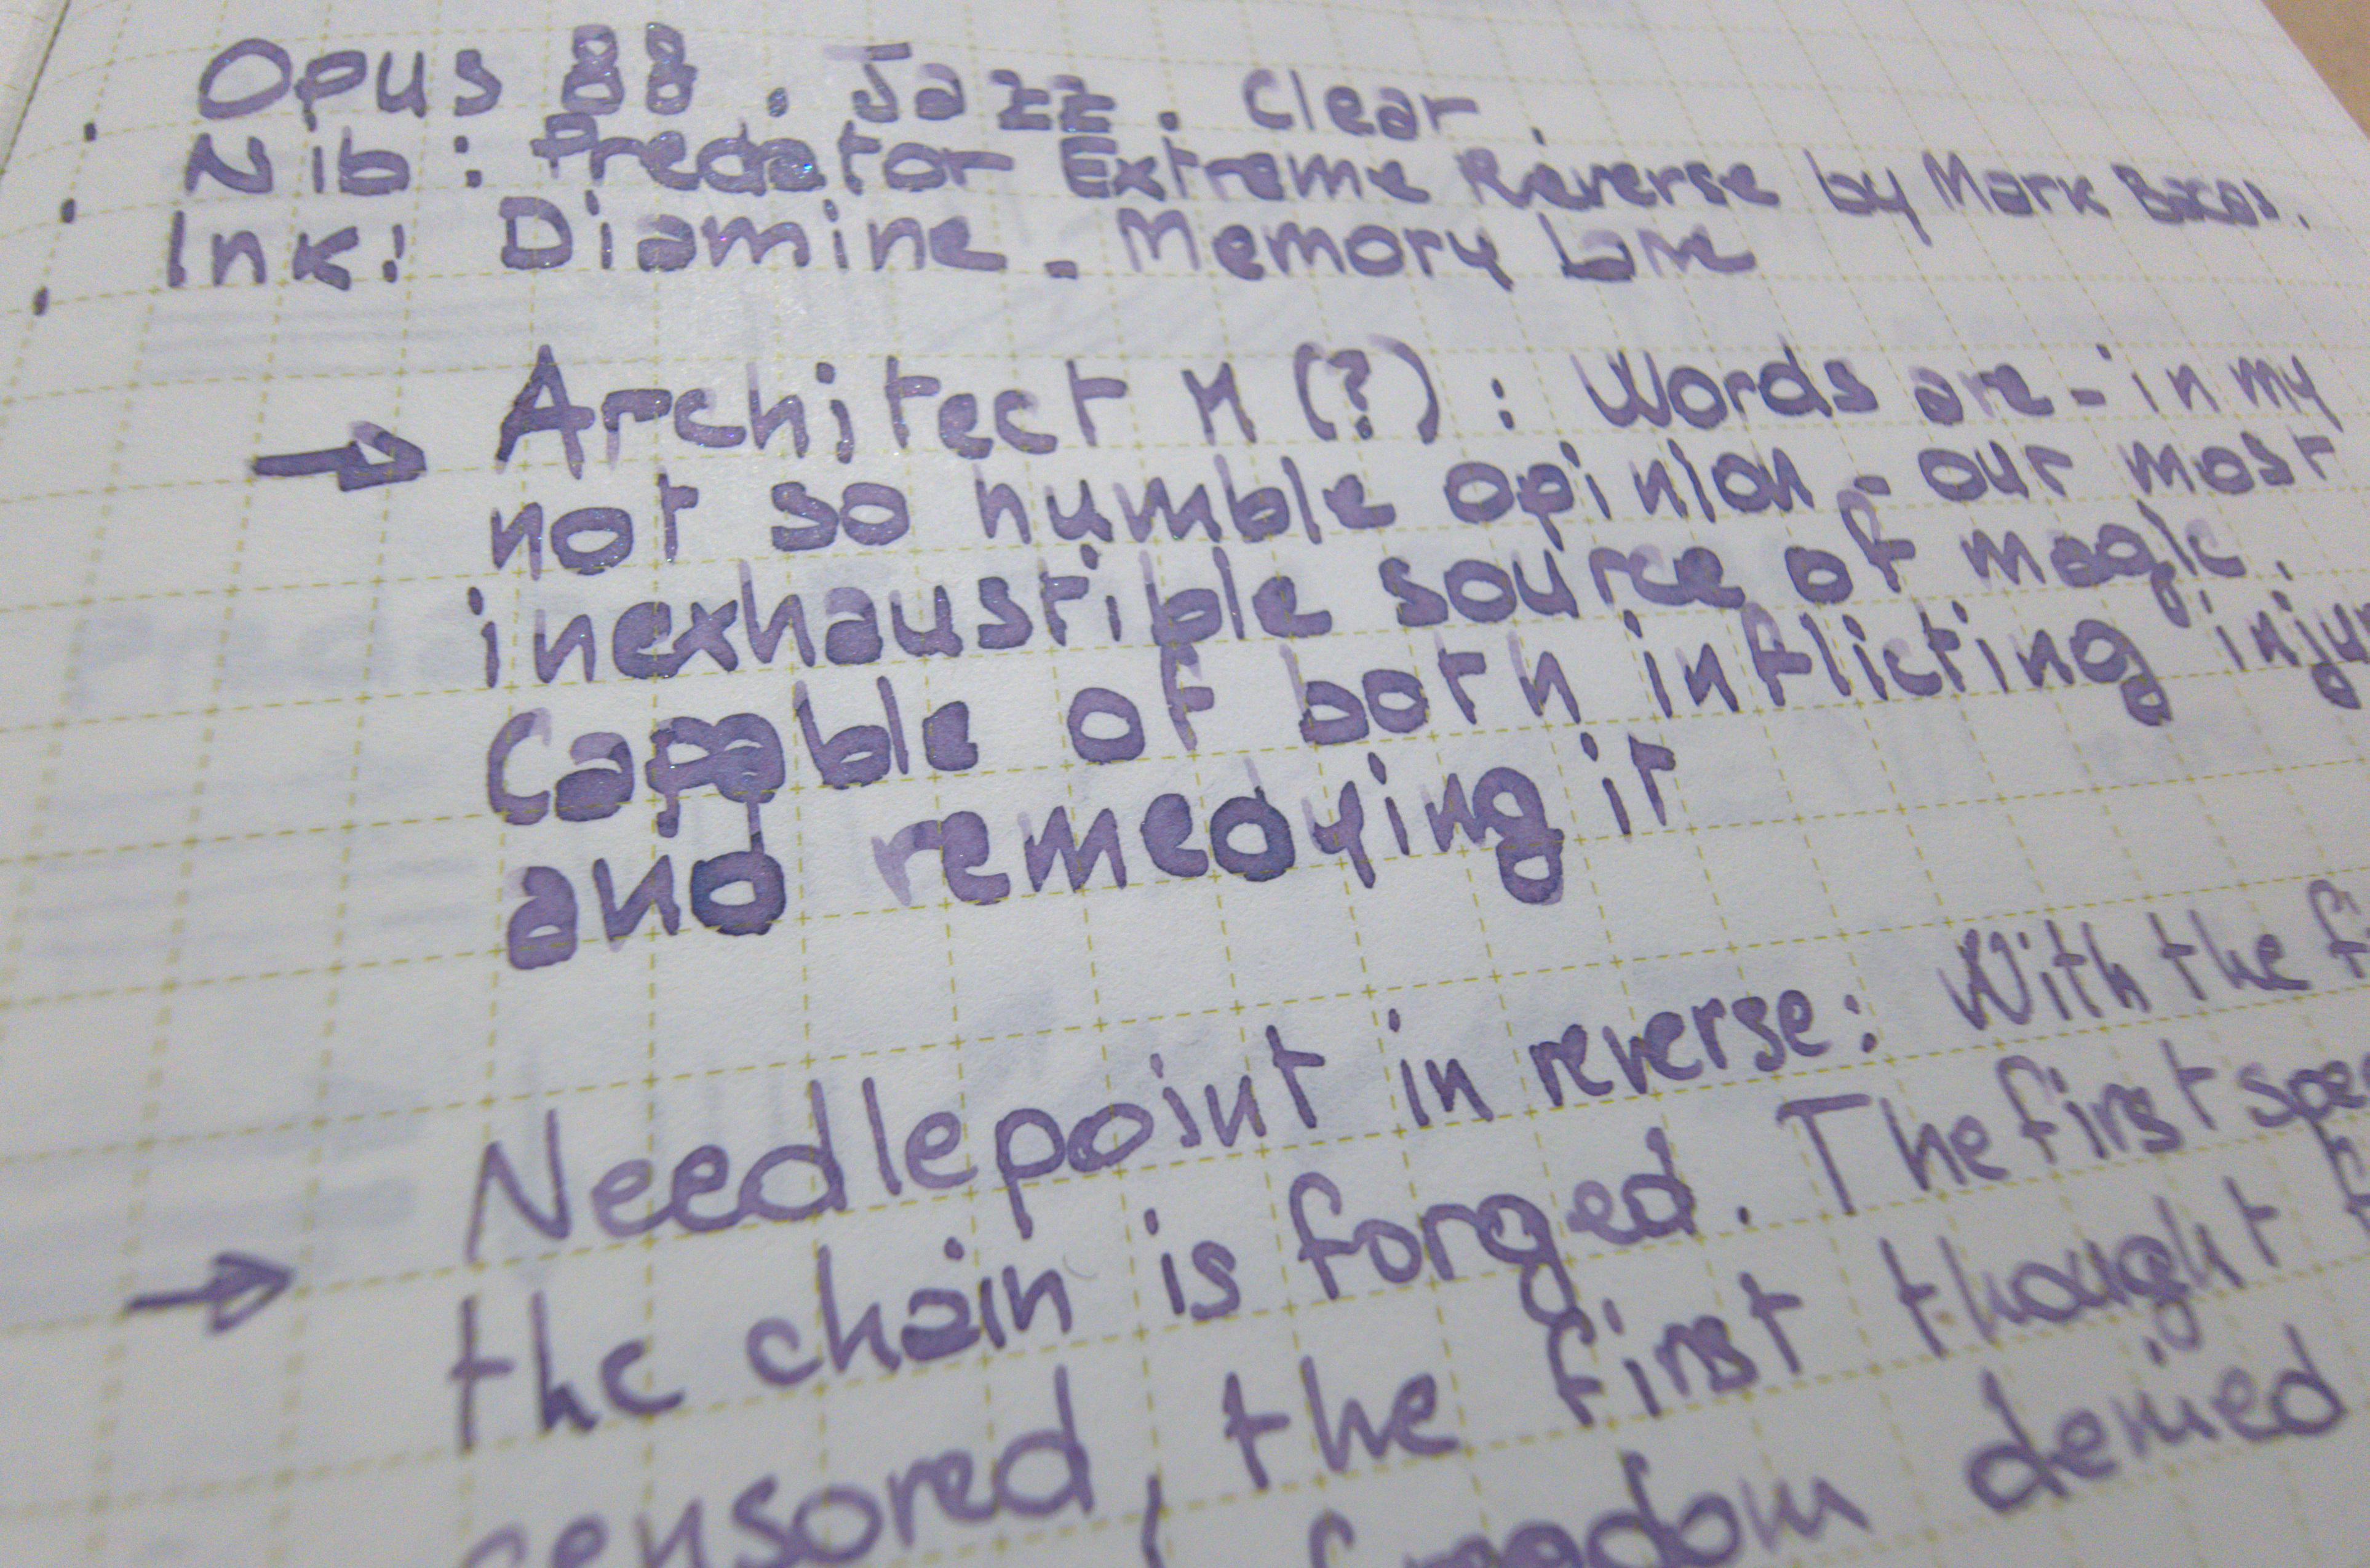 Opus 88 . Jazz . Clear .
Nib : Predator Extreme Reverse by Mark
Ink: Diamine - Memory Lane
→ Architect M (?) : Words are - in my
not so humble opinion - our most
inexhaustible source of magic.
Capable of both inflicting
and remedying it
→ Needlepoint in reverse: With the
the chain is forged. The first
censored, the first thought
freedom denied